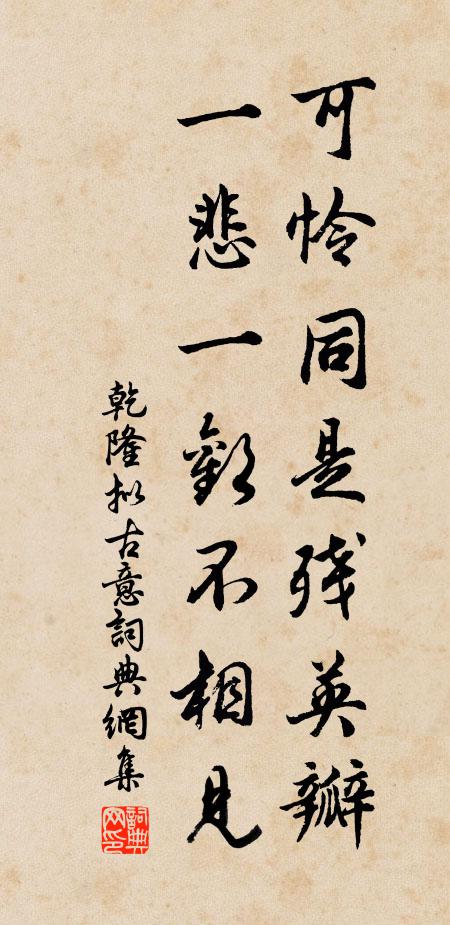 可怜同是残英瓣
一悲一歡不相見
乾隆拟古意詞典網集
詞典网印